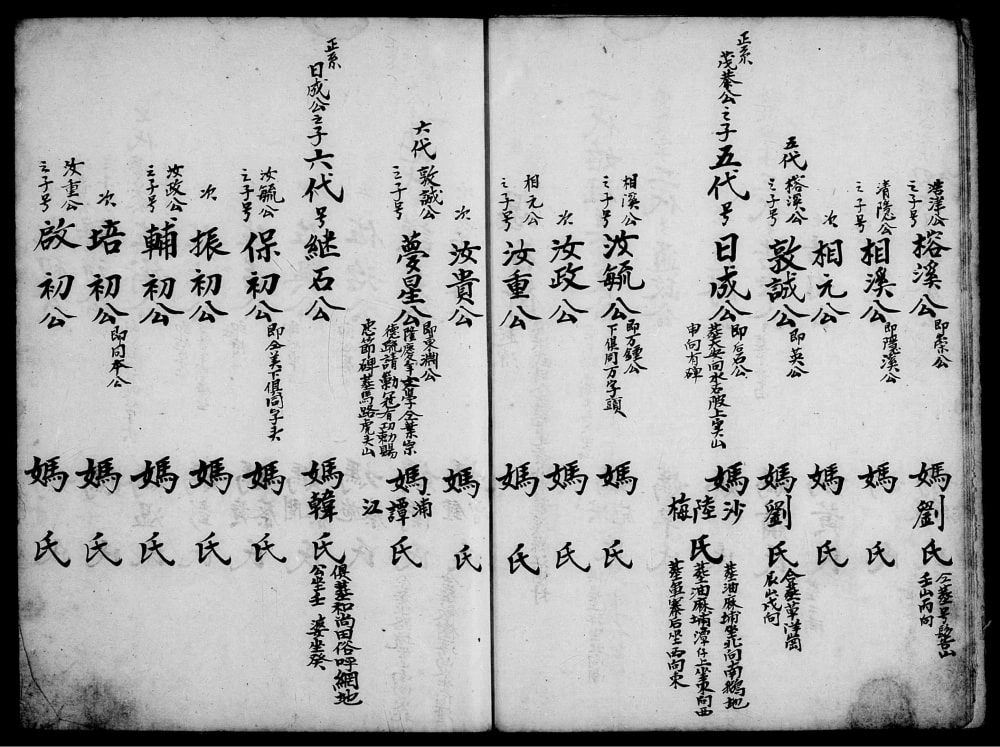 浩津公
之子号
榕溪公
即崇公
媽劉氏
仝葬号髻山
壬山丙向
清隱公
之子号
相溪公
即隱溪公
媽
氏
次
相元公
媽
氏
五代
榕溪公
之子号
敦誠公
即英公
媽劉氏
合葬草洋崗
辰山戌向
正系
茂菴公之子五代号日成公
即后石公
葬大安向水石陂上寅山
申向有碑
媽沙陸梅氏
葬油麻埔坐北向南鵝地
葬油麻埔潭仔上坐東向西
葬虽寨后坐西向東
相溪公
之子号
汝毓公
即万鍾公
下俱同万字頭
媽
氏
次
汝政公
媽
氏
相元公
之子号
汝重公
媽
氏
次
汝貴公
即東淵公
媽
氏
六代
敦誠公
之子号
夢星公
隆慶年文學仝葉宗
德疏請勦冦有功勅賜
忠節碑葬馬路虎头山
媽浦譚江氏
正系
日成公之子六代号継石公
媽韓氏
俱葬和尚田俗呼網地
公坐壬 婆坐癸
汝毓公
之子号
保初公
即全美下俱同字头
媽
氏
次
振初公
媽
氏
汝政公
之子号
輔初公
媽
氏
次
培初公
即同奉公
媽
氏
汝重公
之子号
啟初公
媽
氏